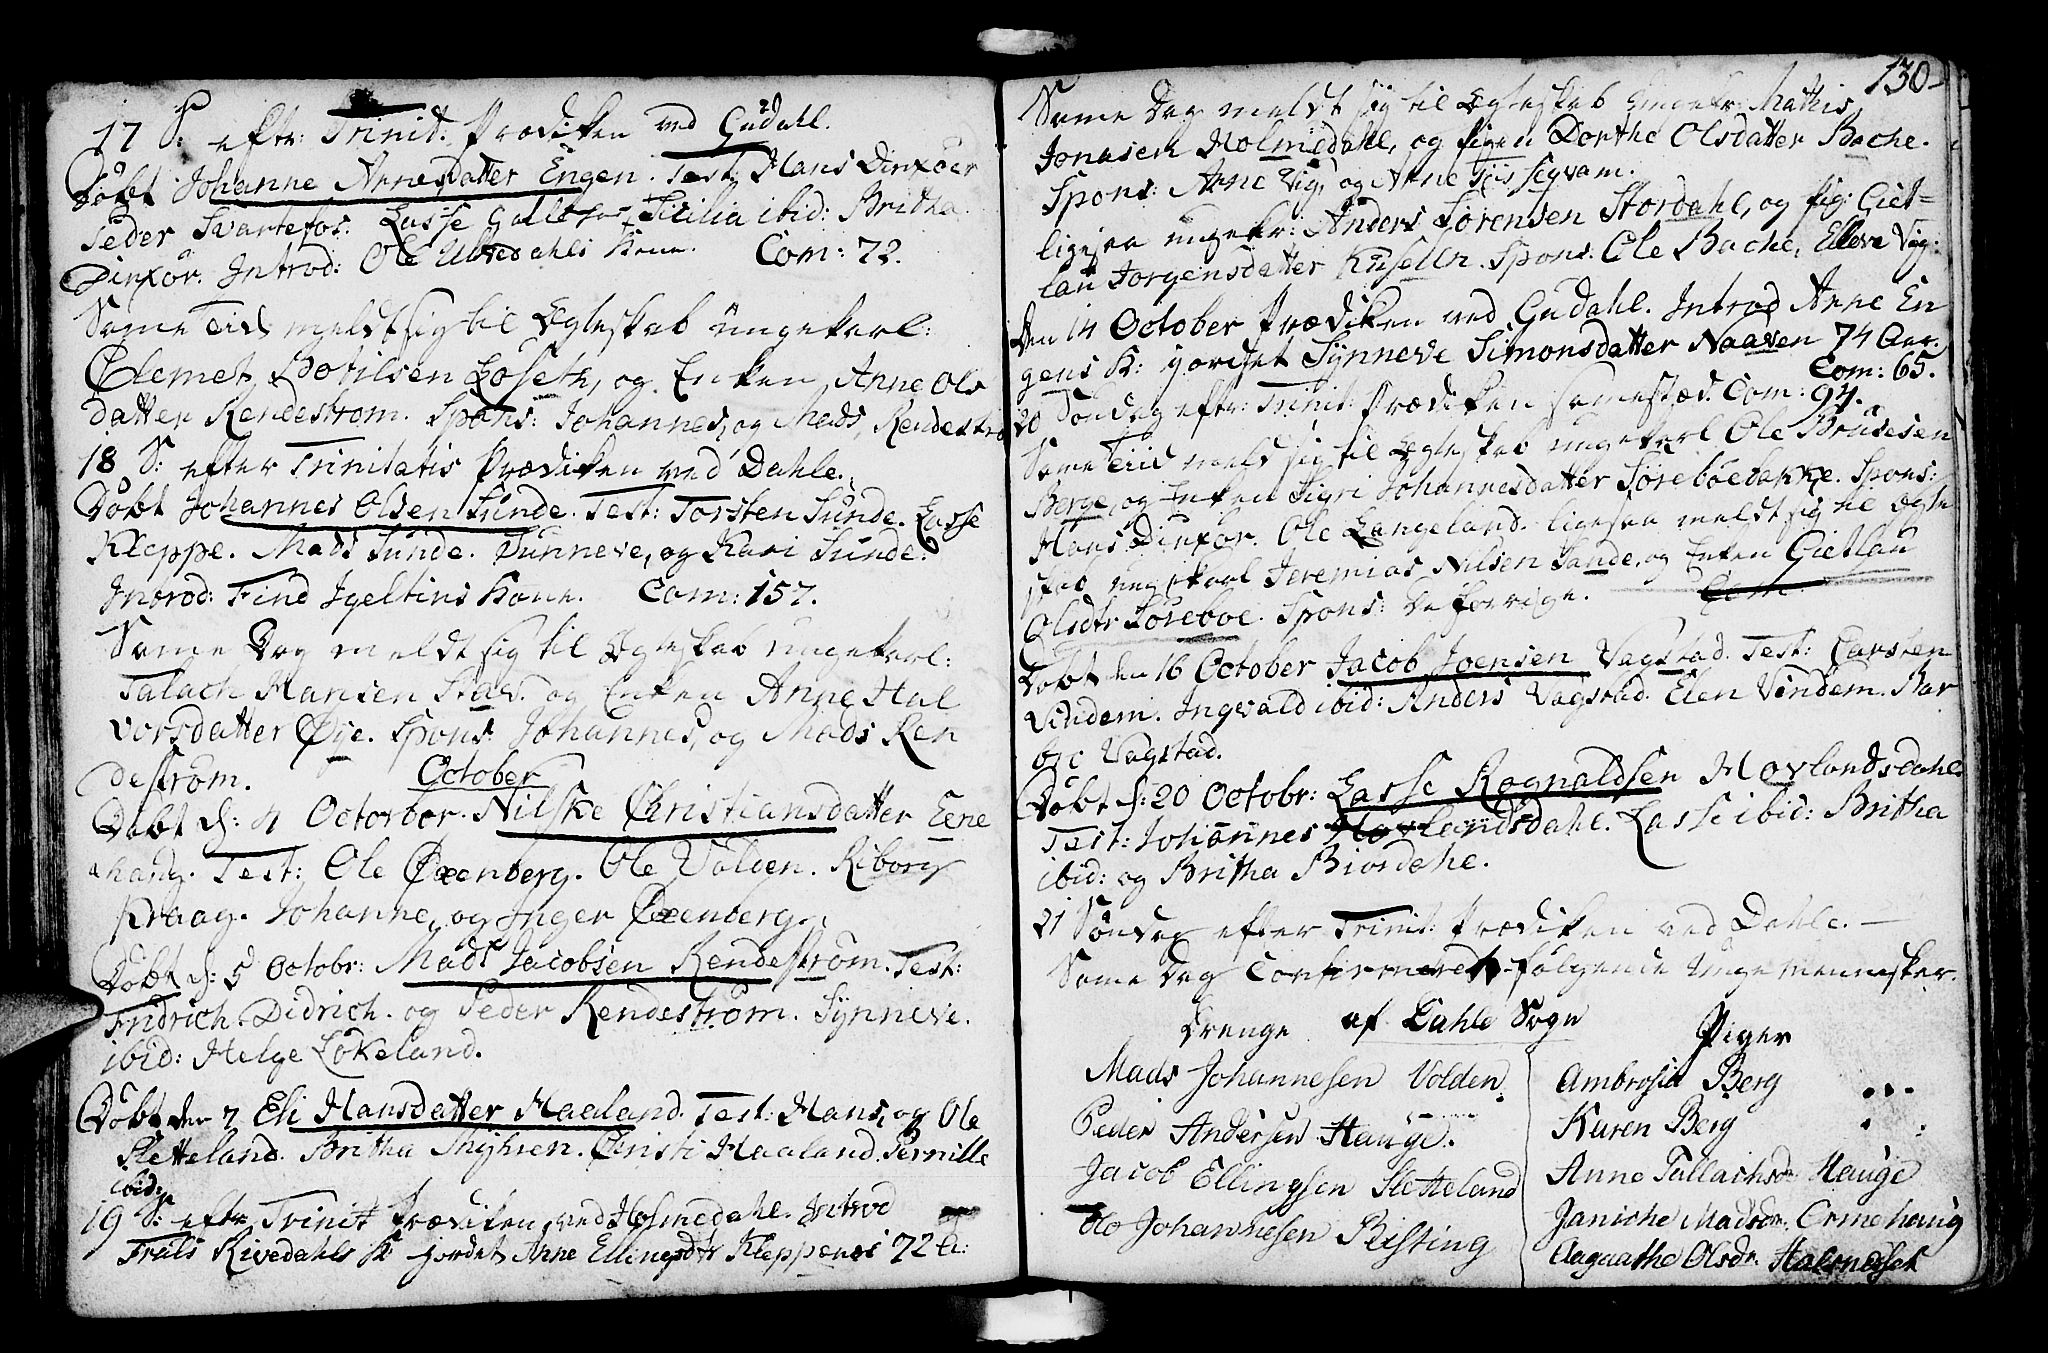 17 S: eftr: Trinit: Prædiken ved Gudahl.
Døbt Johanne Arnesdatter Engen. Test: Hans Dinxøer
Peder Svartefos: Lasse Sicilia ibid: Britha
Dinxør. Introd: Ole Ulvedahls Kone. Com: 72.
Same Tid meldt sig til Ægteskab ungekarl:
Clemet Botilsen Løseth, og Enken Anne Ols
datter Rendestrøm. Spons: Johannes, og Mads, Rendestrø
18 S: efter Trinitatis Prædiken ved Dahle.
Døbt Johannes Olsen Sunde. Test: Torsten Sunde. Lasse
Kleppe. Mads Sunde. Sunneve, og Kari Sunde.
Introd: Find Igeltius Kone. Com: 157.
Same Dag meldt sig til Ægteskab ungekarl:
Talach Hansen Stav. og Enken Anne Hal
vorsdatter Øye. Spons: Johannes, og Mads Ren
destrøm. October
Døbt d: 4 Octorbor. Nilske Christiansdatter Eene
haug. Test: Ole Oxenberg. Ole Volden. Riborg
Kraag. Johanne, og Inger Oxenberg.
Døbt d: 5 Octobr: Mads Jacobsen Rendestrøm. Test:
Fridrich. Didrich. og Peder Rendestrøm. Synneve.
ibid: Helge Løkeland.
Døbt den 7 Eli Hansdatter Haaland. Test: Hans, og Ole
Sletteland. Britha Christi Haaland. Pernille
ibid:
19 S: eftr Trinit Prædiken ved Holmedahl. Introd
Truls Rivedahls K jordet Anne Ellingsdtr Kleppenes 72 A:
130
Same Dag meldt sig til Ægteskab ungekr: Mathis
Jonasen Holmedahl, og pigen Dorthe Olsdatter Bache.
Spons: Arne Vig, og Arne
ligesaa ungekr: Anders Sørensen Stordahl, og pig: Giet=
lau Jørgensdatter Spons: Ole Bache, Elleve Vig:
Den 14 October Prædiken ved Gudahl. Introd Arne En
gens K: jordet Synneve Simonsdatter Naaven 74 Aar.
Com: 65.
20 Søndag eftr: Trinit: Prædiken samested. Com: 94.
Same Tiid meldt sig til Ægteskab ungekarl Ole
Berge, og Enken Sigri Johannesdatter Sørebøebakke. Spons:
Hans Dinxør. Ole Langeland. ligesaa meldt sig til Ægte
skab ungekarl Jeremias Nilsen Sande, og Enken Gietlau
Olsdtr Sørebøe. Spons: De forrige. Com
Døbt den 16 October Jacob Joensen Vagstad. Test: Carsten
Vindem. Ingvald ibid: Anders Vagstad. Elen Vindem. Bar
bre Vagstad.
Døbt d: 20 Octobr: Lasse Ragnaldsen Hovlandsdahl.
Test: Johannes Hovlandsdahl. Lasse ibid: Britha
ibid: og Britha Biordahl.
21 Søndag efter Trinit: Prædiken ved Dahle.
Same Dag Confirmeret følgende Unge mennesker.
Drenge af Dahle Sogn Piger
Mads Johannesen Volden. Ambrosia Berg
Peder Andersen Hauge. Karen Berg
Jacob Ellingsen Sletteland Anne Tallachsdr Hauge
Ole Johannesen Risting Janiche Madsdr. Ormehaug
Aagaathe Olsdr. Halsnesset